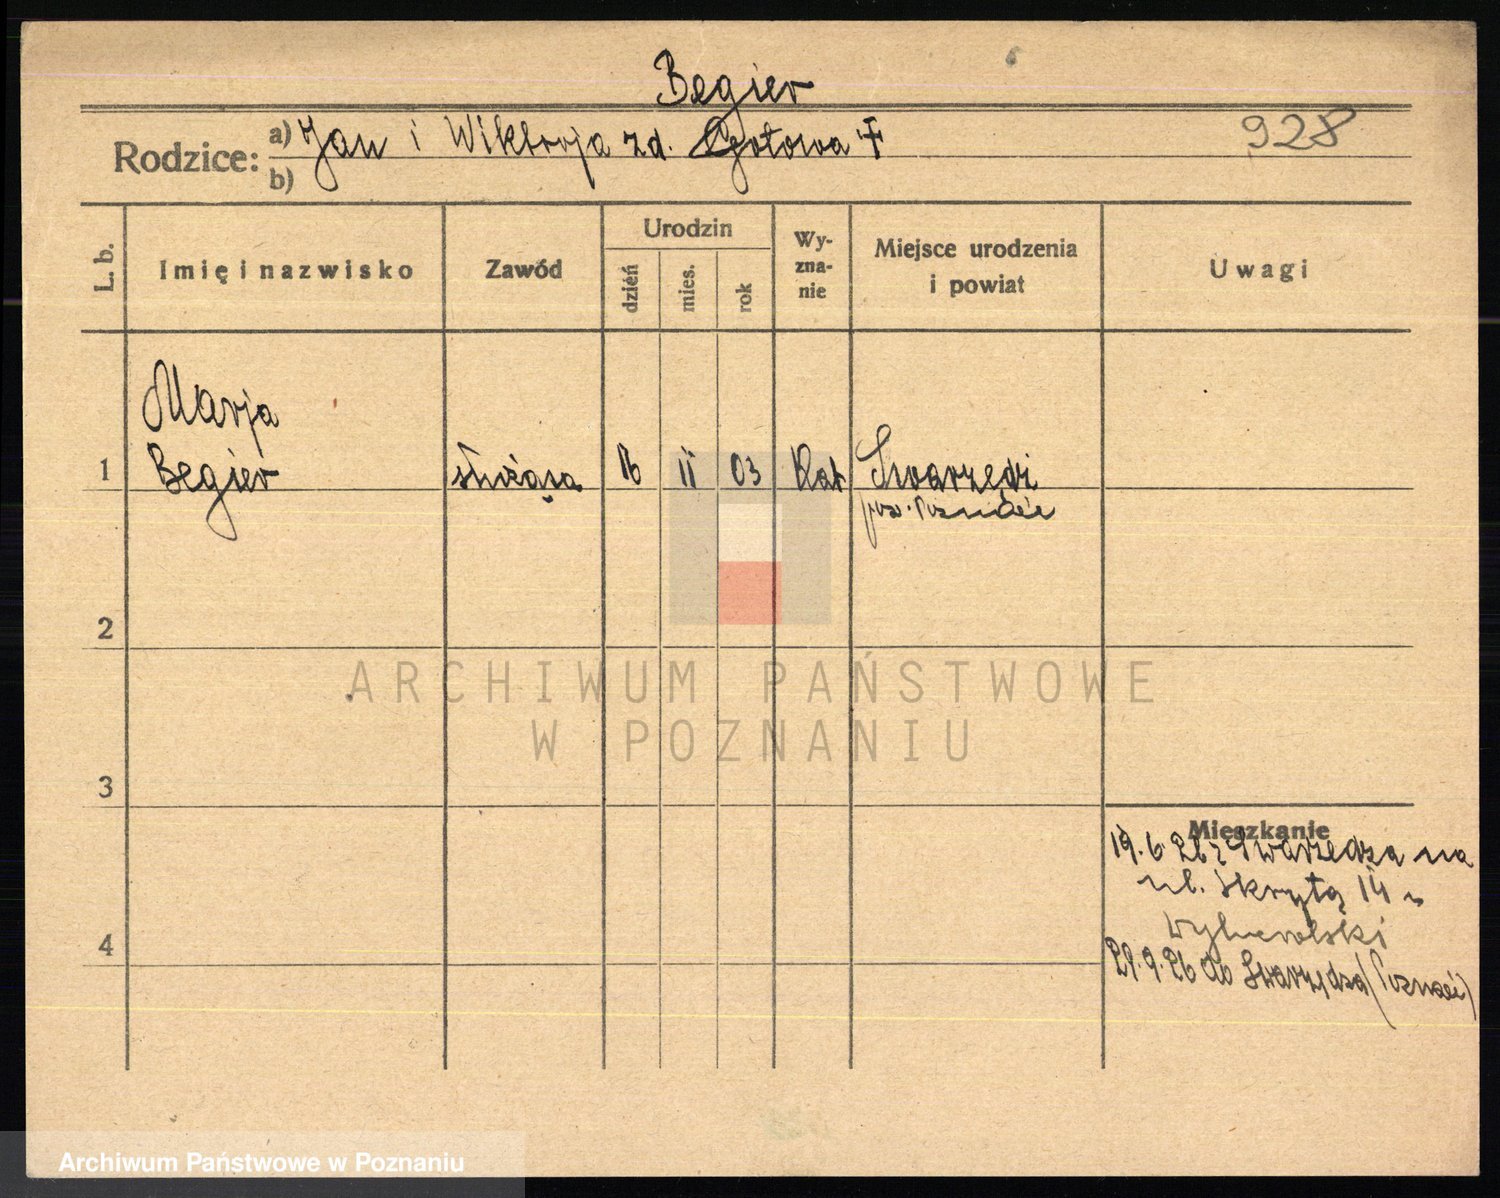 Begier
Rodzice: a) Jan i Wiktorja zd. Gotowa ‡ 928
b)
L. b. Imię i nazwisko Zawód Urodzin dzień mies. rok Wy-
zna-
nie Miejsce urodzenia
i powiat Uwagi
Marja
1 Begier służąca 16 11 03 Kat Swarzędz
pow. Poznań
2
ARCHIWUM PAŃSTWOWE
W POZNANIU
3
Mieszkanie
19.6.26 z Swarzędza na
ul. Skrytą 14 u
4
29.9.26 do Swarzędza (Poznań)
Archiwum Państwowe w Poznaniu